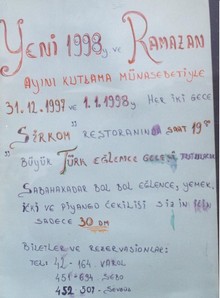 YENİ 1998y ve RAMAZAN
AYINI KUTLAMA MÜNASEBETİYLE
31.12.1997 ve 1.1.1998y HER İKİ GECE
"ŞİRKOM" RESTORANINDA SAAT 19
BÜYÜK TÜRK EĞLEMCE
SABAHAKADAR BOL BOL EĞLENCE, YEMEK,
İÇKİ VE PİYANGO ÇEKİLİŞİ SİZİN
SADECE 30 DM
BİLGİLER VE REZERVASİONLAR:
TEL: 42-164 VAROL
451-694 SEBO
452 307-